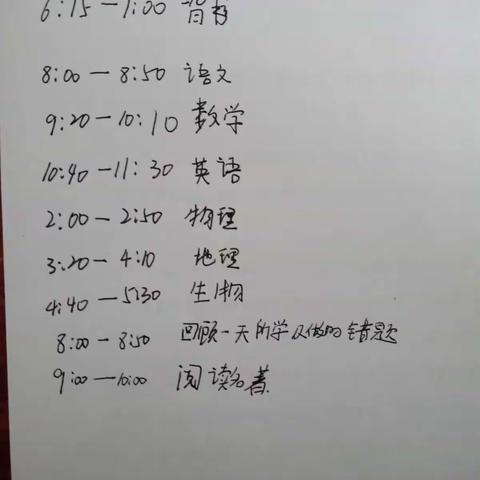 6:15—7:00 背书
8:00—8:50 语文
9:20—10:10 数学
10:40—11:30 英语
2:00—2:50 物理
3:20—4:10 地理
4:40—5:30 生物
8:00—8:50 回顾一天所学及做的错题
9:00—10:00 阅读名著